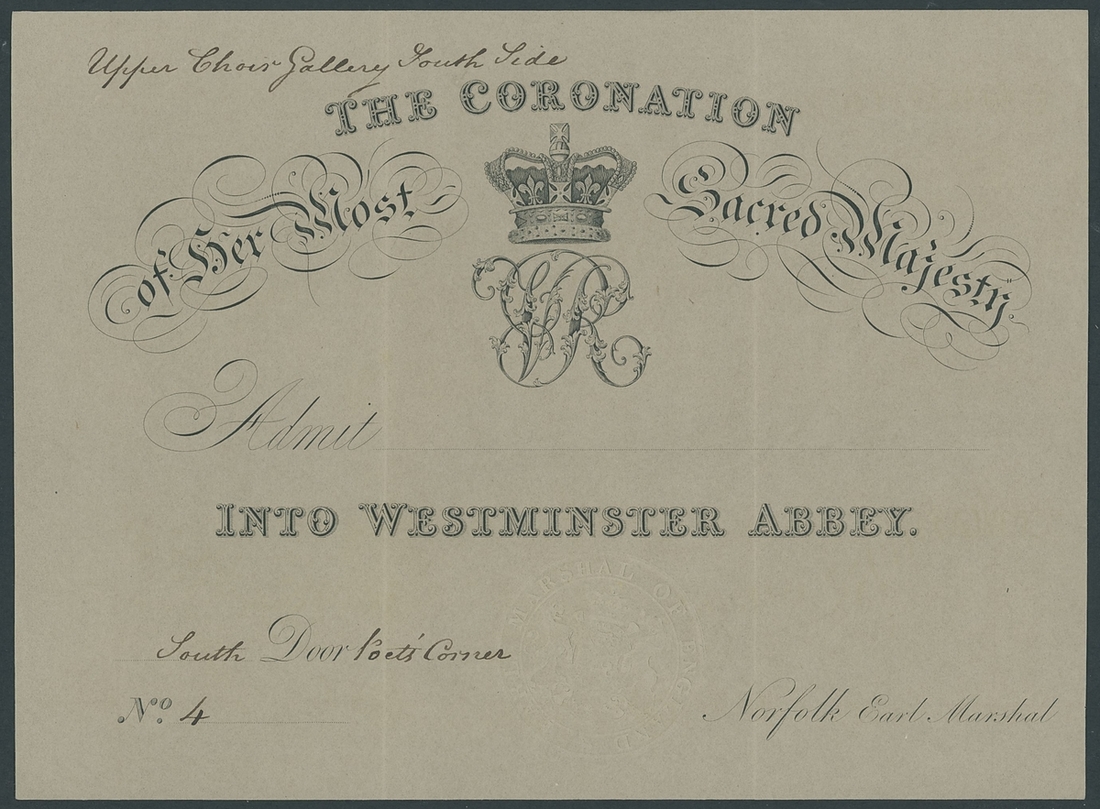 Upper Choir Gallery South Side
THE CORONATION
of Her Most Sacred Majesty
VR
Admit
INTO WESTMINSTER ABBEY.
MARSHAL OF ENGLAND
South Door Poets' Corner
No. 4
Norfolk Earl Marshal